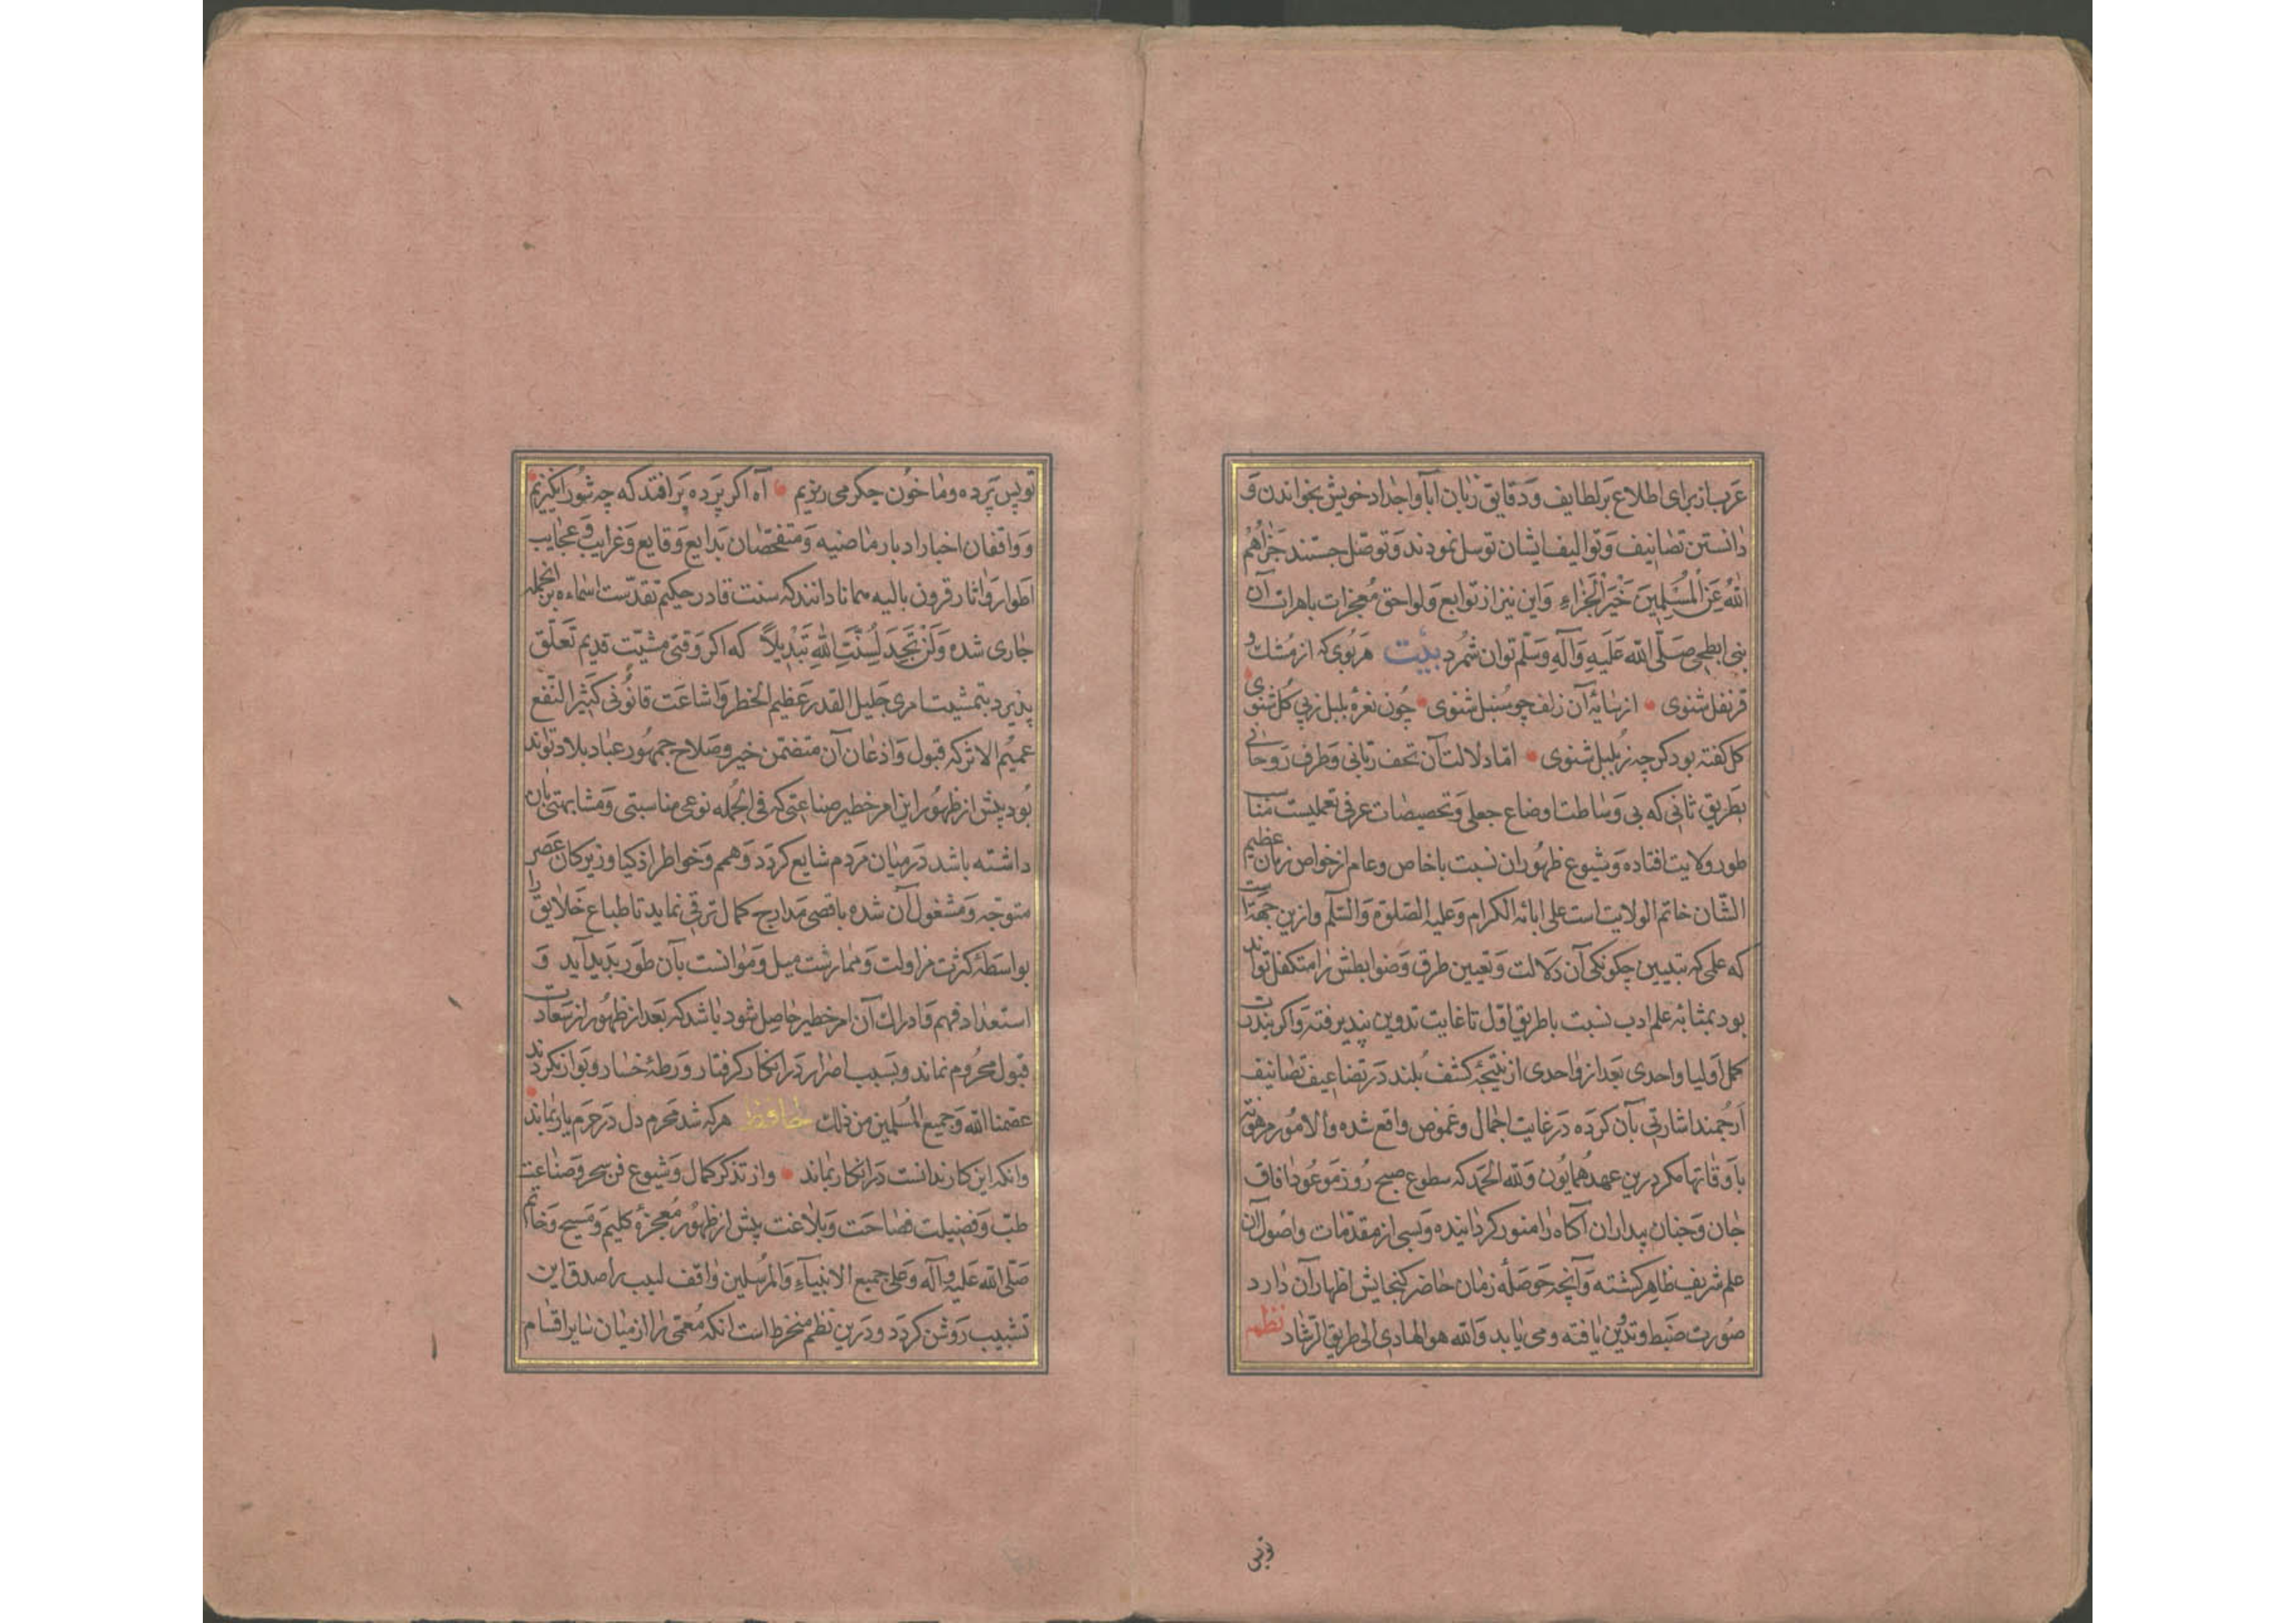 عرب از برای اطلاع بر لطایف و دقایق زبان ابا و اجداد خویش بخواندن و
دانستن تصانیف و توالیف ایشان توسل نمودند و توصل جستند جزاهم
الله عن المسلمین خیر الجزاء و این نیز از توابع و لواحق معجزات باهرات آن
نبی ابطحی صلی الله علیه و آله و سلم توان شمرد بیت هر بوی که از مشک و
قرنفل شنوی از سایۀ آن زلف چو سنبل شنوی چون نغرۀ بلبل زپی کل شنوی
کل کفته بود کرچه ز بلبل شنوی اما دلالت آن تحف ربانی و طرف روحانی
بطریق ثانی که بی وساطت اوضاع جعلی و تخصیصات عرفی تعملیست
طور ولایت افتاده و شیوع ظهور ان نسبت با خاص و عام از خواص زمان عظیم
الشان خاتم الولایت است علی ابائه الکرام و علیه الصلوة و السلم و ازین جهتست
که علمی که بتبیین چکونکی آن دلالت و تعیین طرق و ضوابطش را متکفل تواند
بود بمثابۀ علم ادب نسبت با طریق اول تا غایت تدوین نپذیرفته و اکر بندرت
کمل اولیا واحدی بعد از واحدی از نتیجۀ کشف بلند در تضاعیف تصانیف
ارجمند اشارتی بآن کرده در غایت اجمال و غموض واقع شده و الامور مرهونة
باوقاتها مکر درین عهد همایون و لله الحمد که سطوع صبح روز موعود افاق
جان و جنان بیداران آکاه را منور کردانیده و بسی از مقدمات و اصول آن
علم شریف ظاهر کشته و آنچه حوصلۀ زمان حاضر کنجایش اظهار آن دارد
صورت ضبط و تدوین یافته و می یابد و الله هو الهادی الی طریق الرشاد نظم
تو پس
تو پس پرده و ما خون جکر می ریزیم آه اکر پرده بر افتد که چه شور انکیزیم
و واقفان اخبار ادبار ماضیه و متفحصان بدایع وقایع و غرایب و عجایب
اطوار و اثار قرون بالیه همانا دانند که سنت قادر حکیم تقدست اسماءه برانجمله
جاری شده و لن تجد لسنت الله تبدیلا که اکر وقتی مشیت قدیم تعلق
پذیرد بتمشیت امری جلیل القدر عظیم الخطر و اشاعت قانونی کثیر النفع
عمیم الاثر که قبول و اذعان آن متضمن خیر و صلاح جمهور عباد بلاد تواند
بود پیش از ظهور این امر خطیر صناعتی که فی الجمله نوعی مناسبتی و مشابهتی بان
داشته باشد در میان مردم شایع کردد و همم و خواطر اذکیا و زیرکان عصر
متوجه و مشغول آن شده باقصی مدارج کمال ترقی نماید تا طباع خلایق را
بواسطۀ کثرت مزاولت و ممارست میل و موانست بآن طور بدید آید و
استعداد فهم و ادراک آن امر خطیر حاصل شود باشد که بعد از ظهور از سعادت
قبول محروم نماند و بسبب اصرار در انکار کرفتار ورطۀ خسار و بوار نکردند
عصمنا الله و جمیع المسلمین من ذلک حافظ هر که شد محرم دل در حرم یار بماند
وانکه این کار ندانست در انکار بماند و از تذکر کمال و شیوع فن سحر و صناعت
طب و فضیلت فصاحت و بلاغت پیش از ظهور معجزۀ کلیم و مسیح و خاتم
صلی الله علیه و آله و علی جمیع الانبیاء و المرسلین واقف لبیب را صدق این
تشبیب روشن کردد و درین نظم منخرط است انکه معمی را از میان سایر اقسام